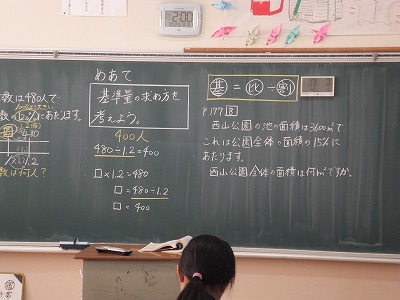 数は480人で
120%にあたります。
数は何人？
めあて
基準量の求め方を
考えよう。
400人
480÷1.2=400
□×1.2=480
□=480÷1.2
□=400
基=比÷割
P177 8
西山公園の池の面積は3600㎡で
これは公園全体の面積の15%に
あたります。
西山公園全体の面積は何㎡ですか。